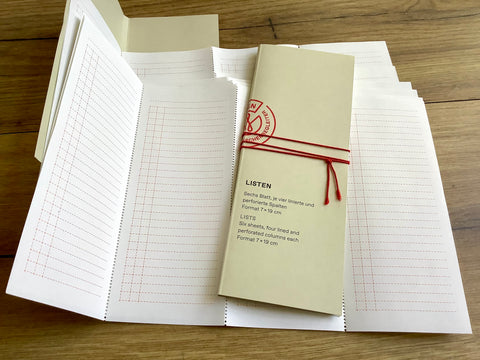 LISTEN
Sechs Blatt, je vier linierte und
perforierte Spalten
Format 7 × 19 cm
LISTS
Six sheets, four lined and
perforated columns each
Format 7 × 19 cm